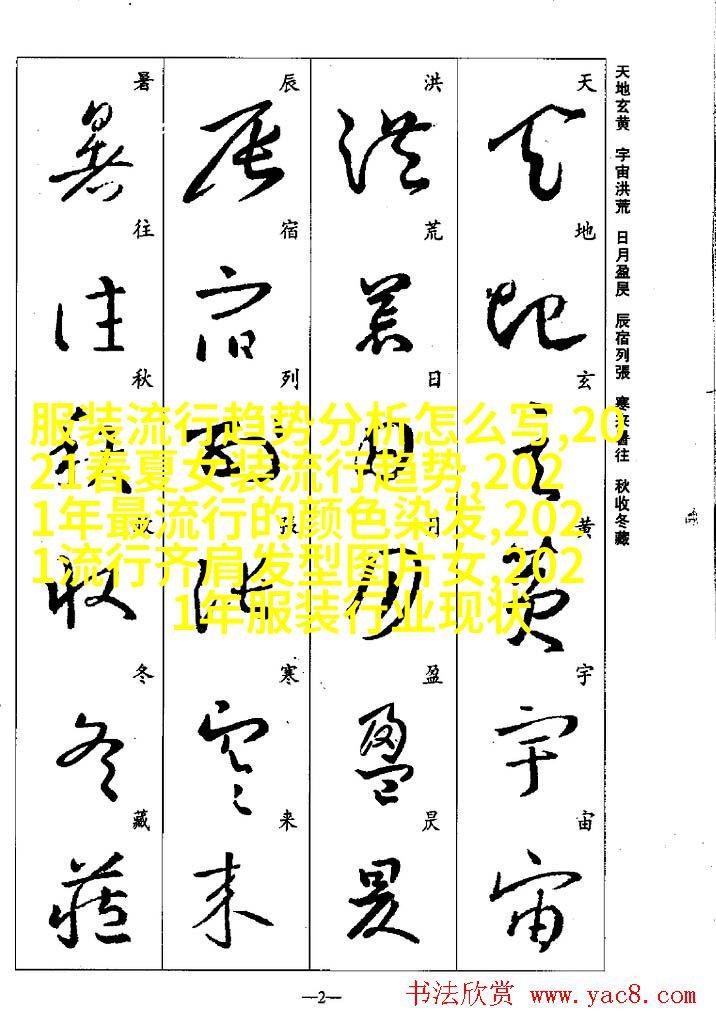 天地玄黄 宇宙洪荒 日月盈昃 辰宿列張 寒来暑往 秋收冬藏
天
天
地
地
玄
玄
黄
黄
宇
宇
宙
宙
洪
洪
荒
荒
日
日
月
月
盈
盈
昃
昃
辰
辰
宿
宿
列
列
张
张
寒
寒
来
来
暑
暑
往
往
秋
秋
收
收
冬
冬
藏
藏
服装流行趋势分析怎么写,20
21春夏女装流行趋势,202
1年最流行的颜色染发,202
1流行齐肩发型图片女,202
1年服装行业现状
—2—
书法欣赏 www.yac8.com